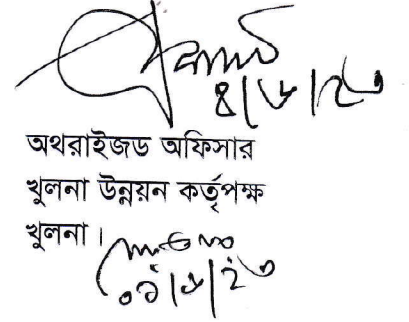 ৪/৬/২৩
অথরাইজড অফিসার
খুলনা উন্নয়ন কর্তৃপক্ষ
খুলনা।
০১/৬/২৩